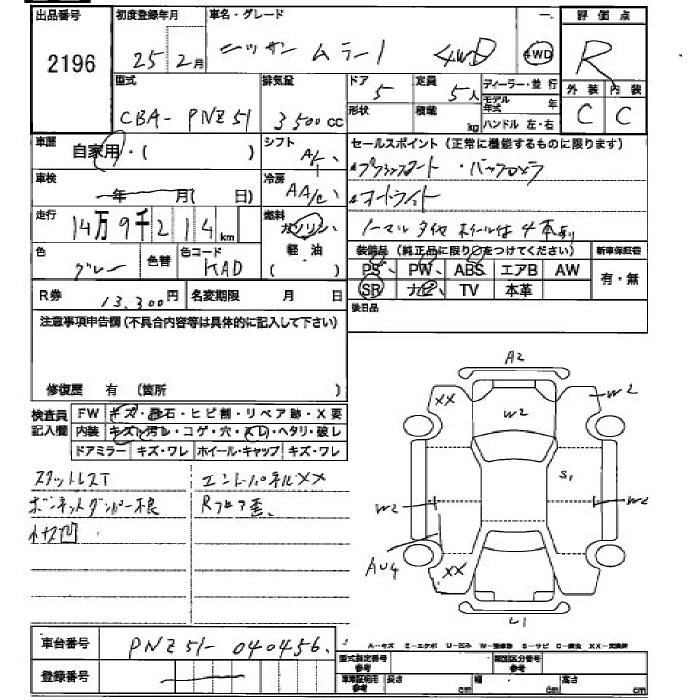 出品番号
2196
初度登録年月
25年2月
車名・グレード
ニッサン ムラーノ 4WD
4WD
評価点
R
外装 内装
C C
型式
CBA- PNZ51
排気量
3500cc
ドア
5
形状
定員
5人
積載
kg
ディーラー・並行
モデル年式 年
ハンドル 左・右
車歴
自家用・( )
シフト
冷房
AAC
セールスポイント(正常に機能するものに限ります)
・バックカメラ
オートライト
ノーマルタイヤホイール付4本あり
車検
年 月( 日)
走行
14万9千214km
燃料
ガソリン
軽油
( )
色
グレー
色替
色コード
KAD
装備品(純正品に限り○をつけてください)
PS PW ABS エアB AW
SR ナビ TV 本革
新車保証書
有・無
R券
13,300円
名変期限 月 日
後日品
注意事項申告欄(不具合内容等は具体的に記入して下さい)
修復歴 有 (箇所 )
検査員記入欄
FW キズ・飛石・ヒビ割・リペア跡・X要
内装 キズ・汚レ・コゲ・穴・スレ・ヘタリ・破レ
ドアミラー キズ・ワレ ホイール・キャップ キズ・ワレ
スタットレスT
エンドパネルXX
ボンネットダンパー不良
Rフロア歪
A2
XX
W2
W2
S1
W2
W2
AU4
XX
U1
車台番号
PNZ51-040456
登録番号
A-キズ E-エクボ U-凹ミ W-補修跡 S-サビ C-腐食 XX-交換済
型式指定番号
参考
類別区分番号
参考
車庫証明用
参考
長さ cm
幅 cm
高さ cm